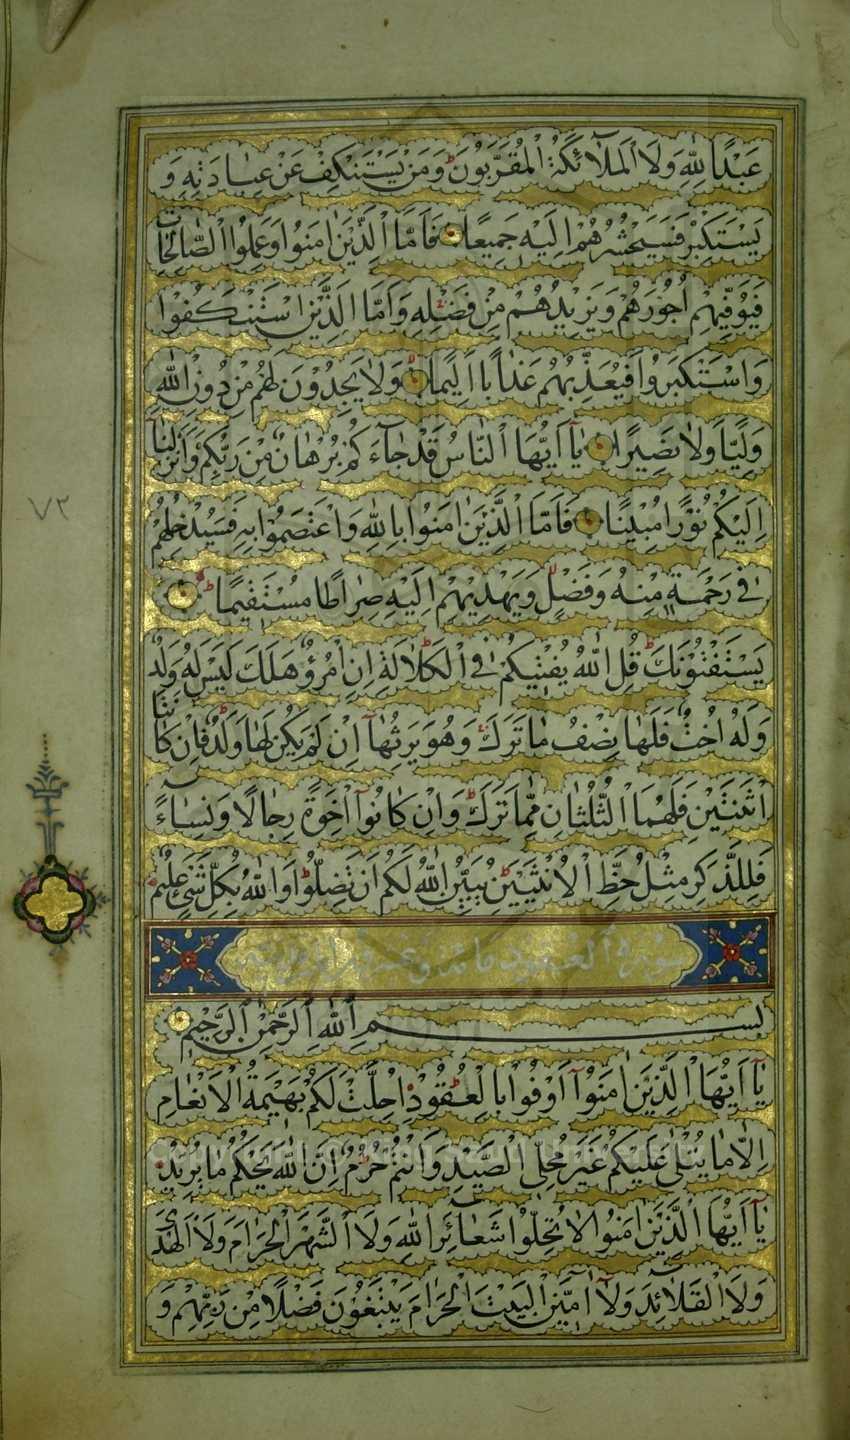 عَبْدًا لِلّٰهِ وَلَا الْمَلَآئِكَةُ الْمُقَرَّبُونَ وَمَنْ يَسْتَنْكِفْ عَنْ عِبَادَتِهِ وَ
يَسْتَكْبِرْ فَسَيَحْشُرُهُمْ اِلَيْهِ جَمِيعًا فَاَمَّا الَّذِينَ اٰمَنُوا وَعَمِلُوا الصَّالِحَاتِ
فَيُوَفِّيهِمْ اُجُورَهُمْ وَيَزِيدُهُمْ مِنْ فَضْلِهِ وَاَمَّا الَّذِينَ اسْتَنْكَفُوا
وَاسْتَكْبَرُوا فَيُعَذِّبُهُمْ عَذَابًا اَلِيمًا وَلَا يَجِدُونَ لَهُمْ مِنْ دُونِ اللّٰهِ
وَلِيًّا وَلَا نَصِيرًا يَآ اَيُّهَا النَّاسُ قَدْ جَآءَكُمْ بُرْهَانٌ مِنْ رَبِّكُمْ وَاَنْزَلْنَا
اِلَيْكُمْ نُورًا مُبِينًا فَاَمَّا الَّذِينَ اٰمَنُوا بِاللّٰهِ وَاعْتَصَمُوا بِهِ فَسَيُدْخِلُهُمْ
فِي رَحْمَةٍ مِنْهُ وَفَضْلٍ وَيَهْدِيهِمْ اِلَيْهِ صِرَاطًا مُسْتَقِيمًا
يَسْتَفْتُونَكَ قُلِ اللّٰهُ يُفْتِيكُمْ فِي الْكَلَالَةِ اِنِ امْرُؤٌ هَلَكَ لَيْسَ لَهُ وَلَدٌ
وَلَهُ اُخْتٌ فَلَهَا نِصْفُ مَا تَرَكَ وَهُوَ يَرِثُهَآ اِنْ لَمْ يَكُنْ لَهَا وَلَدٌ فَاِنْ كَانَتَا
اثْنَتَيْنِ فَلَهُمَا الثُّلُثَانِ مِمَّا تَرَكَ وَاِنْ كَانُوٓا اِخْوَةً رِجَالًا وَنِسَآءً
فَلِلذَّكَرِ مِثْلُ حَظِّ الْاُنْثَيَيْنِ يُبَيِّنُ اللّٰهُ لَكُمْ اَنْ تَضِلُّوا وَاللّٰهُ بِكُلِّ شَيْءٍ عَلِيمٌ
سورة العقود
بِسْمِ اللّٰهِ الرَّحْمٰنِ الرَّحِيمِ
يَآ اَيُّهَا الَّذِينَ اٰمَنُوٓا اَوْفُوا بِالْعُقُودِ اُحِلَّتْ لَكُمْ بَهِيمَةُ الْاَنْعَامِ
اِلَّا مَا يُتْلٰى عَلَيْكُمْ غَيْرَ مُحِلِّي الصَّيْدِ وَاَنْتُمْ حُرُمٌ اِنَّ اللّٰهَ يَحْكُمُ مَا يُرِيدُ
يَآ اَيُّهَا الَّذِينَ اٰمَنُوا لَا تُحِلُّوا شَعَآئِرَ اللّٰهِ وَلَا الشَّهْرَ الْحَرَامَ وَلَا الْهَدْيَ
وَلَا الْقَلَآئِدَ وَلَآ اٰمِّينَ الْبَيْتَ الْحَرَامَ يَبْتَغُونَ فَضْلًا مِنْ رَبِّهِمْ وَ
٧٢